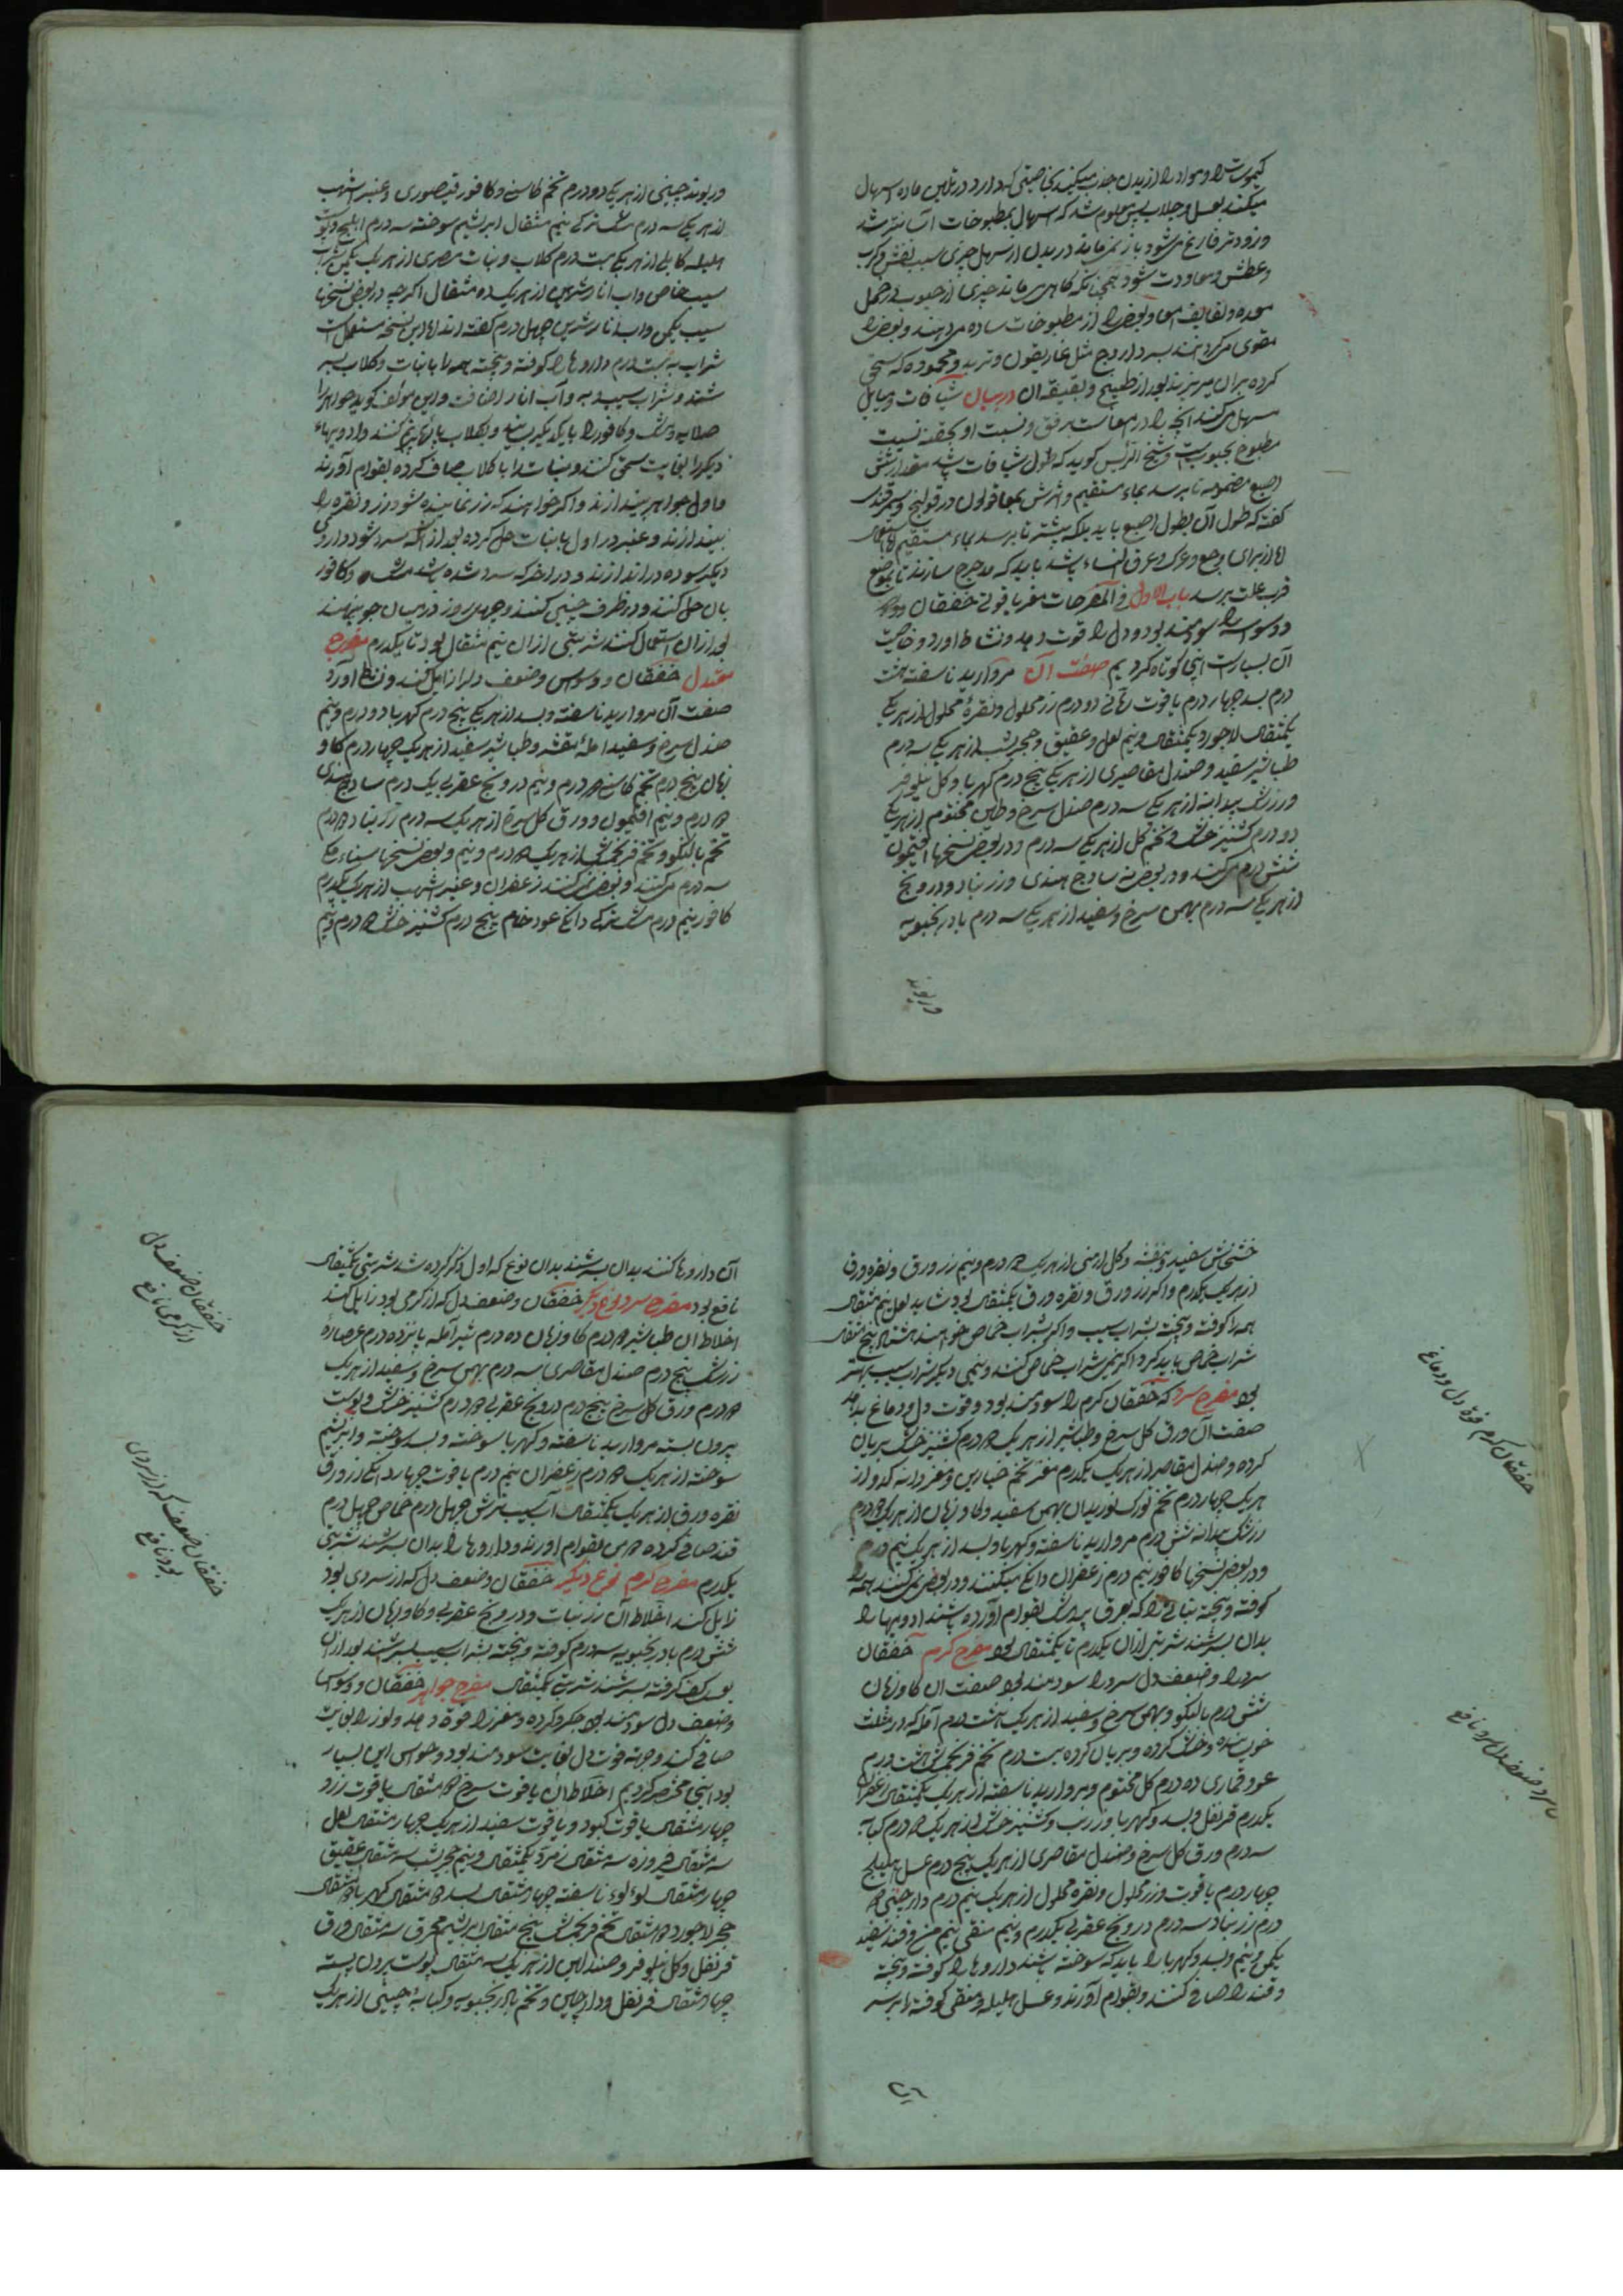 کیموست را و مواد را از بدن جذب میکند بخاصیتی که دارد در تلیین ماده اسهال
میکند بعسل و جلاب پس معلوم شد که اسهال بمطبوخات آسانتر شد
و زودتر فارغ می‌شود باز نمی‌ماند در بدن از مسهل چیزی سبب نفس و کرب
و عطش و معاودت شود همچنانکه کاهی می‌ماند چیزی از حبوب در خمل
معده و لفایف امعا و بعضی را از مطبوخات ساده می‌دهند و بعضی را
مقوی می‌کردانند بسه دارو ج مثل غاریقون و تربد و محموده که سحق
کرده بران می‌ریزند بعد از طبخ و تصفیه آن در بیان شیافات و سایل
مسهل می‌کنند آنچه را در معاست برفق و نسبت او بحقنه نسبت
مطبوخ بحبوبست و شیخ الرئیس کوید که طول شیافات باشد مقدار شش
اصبع مضمومه تا برسد بمعاء مستقیم و اثرش بمعا قولون در قولنج و سمرقندی
کفته که طول آن بطول اصبع باید بلکه بیشتر تا برسد بمعاء مستقیم اما استعمال
اما از برای وجع ورک و عرق النساء باشد باید که مدحرج سازند تا بموضع
قرب علت برسد باب الاول فی المفرحات مفرح یاقوتی خفقان
و وسواس را سودمند بود و دل را قوت دهد و نشاط آورد و خاصیت
آن بسیارست اینجا کوتاه کردیم صفت آن مروارید ناسفته هشت
درم بسد چهار درم یاقوت رمانی دو درم زر محلول و نقرهٔ محلول از هر یک
یکمثقال لاجورد یکمثقال و نیم لعل و عقیق و حجر یشب از هر یک سه درم
طباشیر سفید و صندل مقاصیری از هر یک پنج درم کهربا و کل نیلوفر
و زرشک بیدانه از هر یک سه درم صندل سرخ و طین مختوم از هر یک
دو درم کشنیز خشک و تخم کل از هر یک سه درم و در بعضی نسخها افتیمون
شش درم می‌کنند و در بعضی نه سادج هندی و زرنباد و درونج
از هر یک سه درم بهمن سرخ و سفید از هر یک سه درم بادرنجبویه
و ریوند
و ریوند چینی از هر یک دو درم تخم کاسنی و کافور قیصوری و عنبر اشهب
از هر یک سه درم مشک ترکی نیم مثقال ابریشم سوخته سه درم املج و پوست
هلیله کابلی از هر یک بیست درم کلاب و نبات مصری از هر یک یکمن شراب
سیب خاص و آب انار شیرین از هر یک ده مثقال اکرچه در بعضی نسخها
سیب یکمن و آب انار شیرین چهل درم کفته‌اند اما این نسخه مستعملست
شراب به بیست درم داروها را کوفته و بیخته همه را با نبات و کلاب بسر
شند و شراب سیب و به و آب انار اضافت و این مولف کوید جواهر را
صلایه و مشک و کافور را بایکدیکر بسایند و بکلاب با انها نرم کنند و ادویهاء
دیکر را بغایت سحق کنند و نبات را با کلاب صاف کرده بقوام آورند
و اول جواهر بیندازند و اکر خواهند که زر نماینده شود زر و نقره را
بیندازند و عنبر در اول با نبات حل کرده بعد از آنکه سرد شود داروی
دیکر سوده در اندازند و در آخر که سرد شده باشد مشک و کافور
بان حل کنند و در ظرف چینی کنند و چهل روز در میان جو بنهند
بعد از ان استعمال کنند شربتی از ان نیم مثقال بود تا یکدرم مفرح
معتدل خفقان و وسواس و ضعف دل را زایل کند و نشاط آورد
صفت آن مروارید ناسفته و بسد از هر یک پنج درم کهربا دو درم و نیم
صندل سرخ و سفید امله مقشر و طباشیر سفید از هر یک چهار درم کاو
زبان پنج درم تخم کاسنی درم و نیم درونج عقربی یک درم سادج هندی
درم و نیم افتیمون و ورق کل سرخ از هر یک سه درم زرنباد درم
تخم بالنکو و تخم فرنجمشک از هر یک درم و نیم و بعضی نسخها سناء مکی
سه درم می‌کنند و بعضی نمی‌کنند زعفران و عنبر اشهب از هر یک یکدرم
کافور نیم درم مشک ترکی دانکی عود خام پنج درم کشنیز خشک درم و نیم
خشخاش سفید و بنفشه و کل ارمنی از هر یک درم و نیم زر ورق و نقره ورق
از هر یک یکدرم و اکر زر ورق و نقره ورق یکمثقال بود شاید لعل نیم مثقال
همه را کوفته و بیخته بشراب سیب و اکر بشراب حماض خواهند هشتاد پنج مثقال
شراب حماض باید کرد و اکر نیمی شراب حماض کنند و نیمی دیکر شراب سیب بهتر
بود مفرح سرد که خفقان کرم را سودمند بود و قوت دل و دماغ بدهد
صفت آن ورق کل سرخ و طباشیر از هر یک درم کشنیز خشک بریان
کرده و صندل مقاصر از هر یک یکدرم مغز تخم خیارین و مغز دانه کدو از
هر یک چهار درم تخم تورک بوریدان بهمن سفید و کاوزبان از هر یک درم
زرشک بیدانه شش درم مروارید ناسفته و کهربا و بسد از هر یک نیم درم
و در بعضی نسخها کافور نیم درم زعفران دانکی میکنند و در بعضی نمی‌کنند همه را
کوفته و بیخته نباتی را که بعرق بیدمشک بقوام آورده باشند ادویها را
بدان بسرشند شربتی از ان یکدرم تا یکمثقال بود مفرح کرم خفقان
سرد را و ضعف دل سرد را سودمند بود صفت ان کاوزبان
شش درم بالنکو و بهمن سرخ و سفید از هر یک هشت درم آمله که در مثلث
خوبسانده و خشک کرده و بریان کرده بیست درم تخم فرنجمشک هشت درم
عود قماری ده درم کل مختوم و مروارید ناسفته از هر یک یکمثقال زعفران
یکدرم قرنفل و بسد و کهربا و زرنب و کشنیز خشک از هر یک درم کبابه
سه درم ورق کل سرخ و صندل مقاصری از هر یک پنج درم عسل هلیلج
چهار درم یاقوت و زر محلول و نقره محلول از هر یک نیم درم دارچینی
درم زرنباد سه درم درونج عقربی یکدرم و نیم منقی نیم من و قند سفید
یکمن و نیم و بسد و کهربا را باید که سوخته باشند داروها را کوفته و بیخته
و قند را صافی کنند و بقوام آورند و عسل هلیله و منقی کوفته
خفقان کرم قوة دل و دماغ
آن داروها کنند بدان بسرشند بدان نوع که اول ذکر کرده شد شربتی یکمثقال
نافع بود مفرح سرد نوع دیکر خفقان و ضعف دل که از کرمی بود زایل کند
اخلاط ان طباشیر درم کاوزبان ده درم شیر آمله پانزده درم عصارهٔ
زرشک پنج درم صندل مقاصری سه درم بهمن سرخ و سفید از هر یک
درم ورق کل سرخ پنج درم درونج عقربی درم کشنیز خشک و پوست
بیرون پسته مروارید ناسفته و کهربا سوخته و بسد سوخته و ابریشم
سوخته از هر یک درم زعفران نیم درم یاقوت چهار دانک زر ورق
نقره ورق از هر یک یکمثقال آب سیب ترش چهل درم حماض چهل درم
قند صافی کرده من بقوام آورند و داروها را بدان بسرشند شربتی
یکدرم مفرح کرم نوع دیکر خفقان و ضعف دل که از سردی بود
زایل کند اخلاط آن زرنبات و درونج عقربی و کاوزبان از هر یک
شش درم بادرنجبویه سه درم کوفته و بیخته بشراب سیب بسرشند بعد از ان
بعسل کف کرفته بسرشند شربتی یکمثقال مفرح جواهر خفقان و وسواس
و ضعف دل سودمند بود جکر و کرده و مغز را قوة دهد و لون را بغایت
صافی کند و جهة قوت دل بغایت سودمند بود و خواص این بسیار
بود اینجا مختصر کردیم اخلاط ان یاقوت سرخ مثقال یاقوت زرد
چهار مثقال یاقوت کبود و یاقوت سفید از هر یک چهار مثقال لعل
سه مثقال فیروزه سه مثقال زمرد یکمثقال و نیم حجر یشب سه مثقال عقیق
چهار مثقال لوءلوء ناسفته چهار مثقال بسد مثقال کهربا مثقال
حجر لاجورد مثقال تخم فرنجمشک پنج مثقال ابریشم محرق سه مثقال ورق
قرنفل و کل نیلوفر و صندلین از هر یک سه مثقال پوست بیرون پسته
چهار مثقال قرنفل و دارچین و تخم بادرنجبویه و کبابهٔ چینی از هر یک
خفقان و ضعف دل
از کرمی نافع
خفقان و ضعف که از سردی
بود نافع